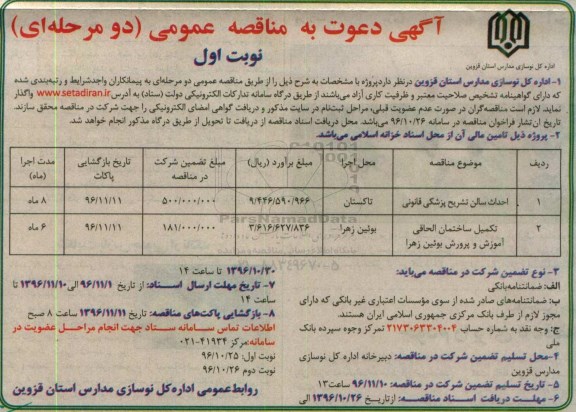 آگهی دعوت به مناقصه عمومی (دو مرحله‌ای)
نوبت اول
اداره کل نوسازی مدارس استان قزوین
۱- اداره کل نوسازی مدارس استان قزوین درنظر دارد پروژه با مشخصات به شرح ذیل را از طریق مناقصه عمومی دو مرحله‌ای به پیمانکاران واجد شرایط و رتبه‌بندی شده
که دارای گواهینامه تشخیص صلاحیت معتبر و ظرفیت کاری آزاد می‌باشند از طریق درگاه سامانه تدارکات الکترونیکی دولت (ستاد) به آدرس www.setadiran.ir واگذار
نماید. لازم است مناقصه‌گران در صورت عدم عضویت قبلی، مراحل ثبت‌نام در سایت مذکور و دریافت گواهی امضای الکترونیکی را جهت شرکت در مناقصه محقق سازند.
تاریخ انتشار فراخوان مناقصه در سامانه ۹۶/۱۰/۲۶ می‌باشد. محل دریافت اسناد مناقصه از دریافت تا تحویل از طریق درگاه مذکور انجام خواهد شد.
۲- پروژه ذیل تامین مالی آن از محل اسناد خزانه اسلامی می‌باشد.
ردیف موضوع مناقصه محل اجرا مبلغ برآورد (ریال) مبلغ تضمین شرکت در مناقصه تاریخ بازگشایی پاکات مدت اجرا (ماه)
۱ احداث سالن تشریح پزشکی قانونی تاکستان ۹/۴۴۶/۵۹۰/۹۶۶ ۵۰۰/۰۰۰/۰۰۰ ۹۶/۱۱/۱۱ ۸ ماه
۲ تکمیل ساختمان الحاقی آموزش و پرورش بوئین زهرا بوئین زهرا ۳/۶۱۶/۶۲۷/۸۳۶ ۱۸۱/۰۰۰/۰۰۰ ۹۶/۱۱/۱۱ ۶ ماه
۳- نوع تضمین شرکت در مناقصه می‌باید:
الف: ضمانتنامه بانکی
ب: ضمانتنامه‌های صادر شده از سوی مؤسسات اعتباری غیر بانکی که دارای
مجوز لازم از طرف بانک مرکزی جمهوری اسلامی ایران هستند.
ج: وجه نقد به شماره حساب ۲۱۷۳۰۶۳۳۰۴۰۰۴ تمرکز وجوه سپرده بانک
ملی
۴- محل تسلیم تضمین شرکت در مناقصه: دبیرخانه اداره کل نوسازی
مدارس قزوین
۵- تاریخ تسلیم تضمین شرکت در مناقصه: ۹۶/۱۱/۱۰ ساعت ۱۳
۶- مهلت دریافت اسناد مناقصه: از تاریخ ۱۳۹۶/۱۰/۲۶ الی
۱۳۹۶/۱۰/۳۰ تا ساعت ۱۴
۷- تاریخ مهلت ارسال اسناد: از تاریخ ۹۶/۱۱/۱ الی ۱۳۹۶/۱۱/۱۰ تا
ساعت ۱۴
۸- بازگشایی پاکت‌های مناقصه: تاریخ ۱۳۹۶/۱۱/۱۱ ساعت ۸ صبح
اطلاعات تماس سامانه ستاد جهت انجام مراحل عضویت در
سامانه: مرکز ۴۱۹۳۴-۰۲۱
نوبت اول: ۹۶/۱۰/۲۵
نوبت دوم: ۹۶/۱۰/۲۶
روابط عمومی اداره کل نوسازی مدارس استان قزوین
ParsNamadData